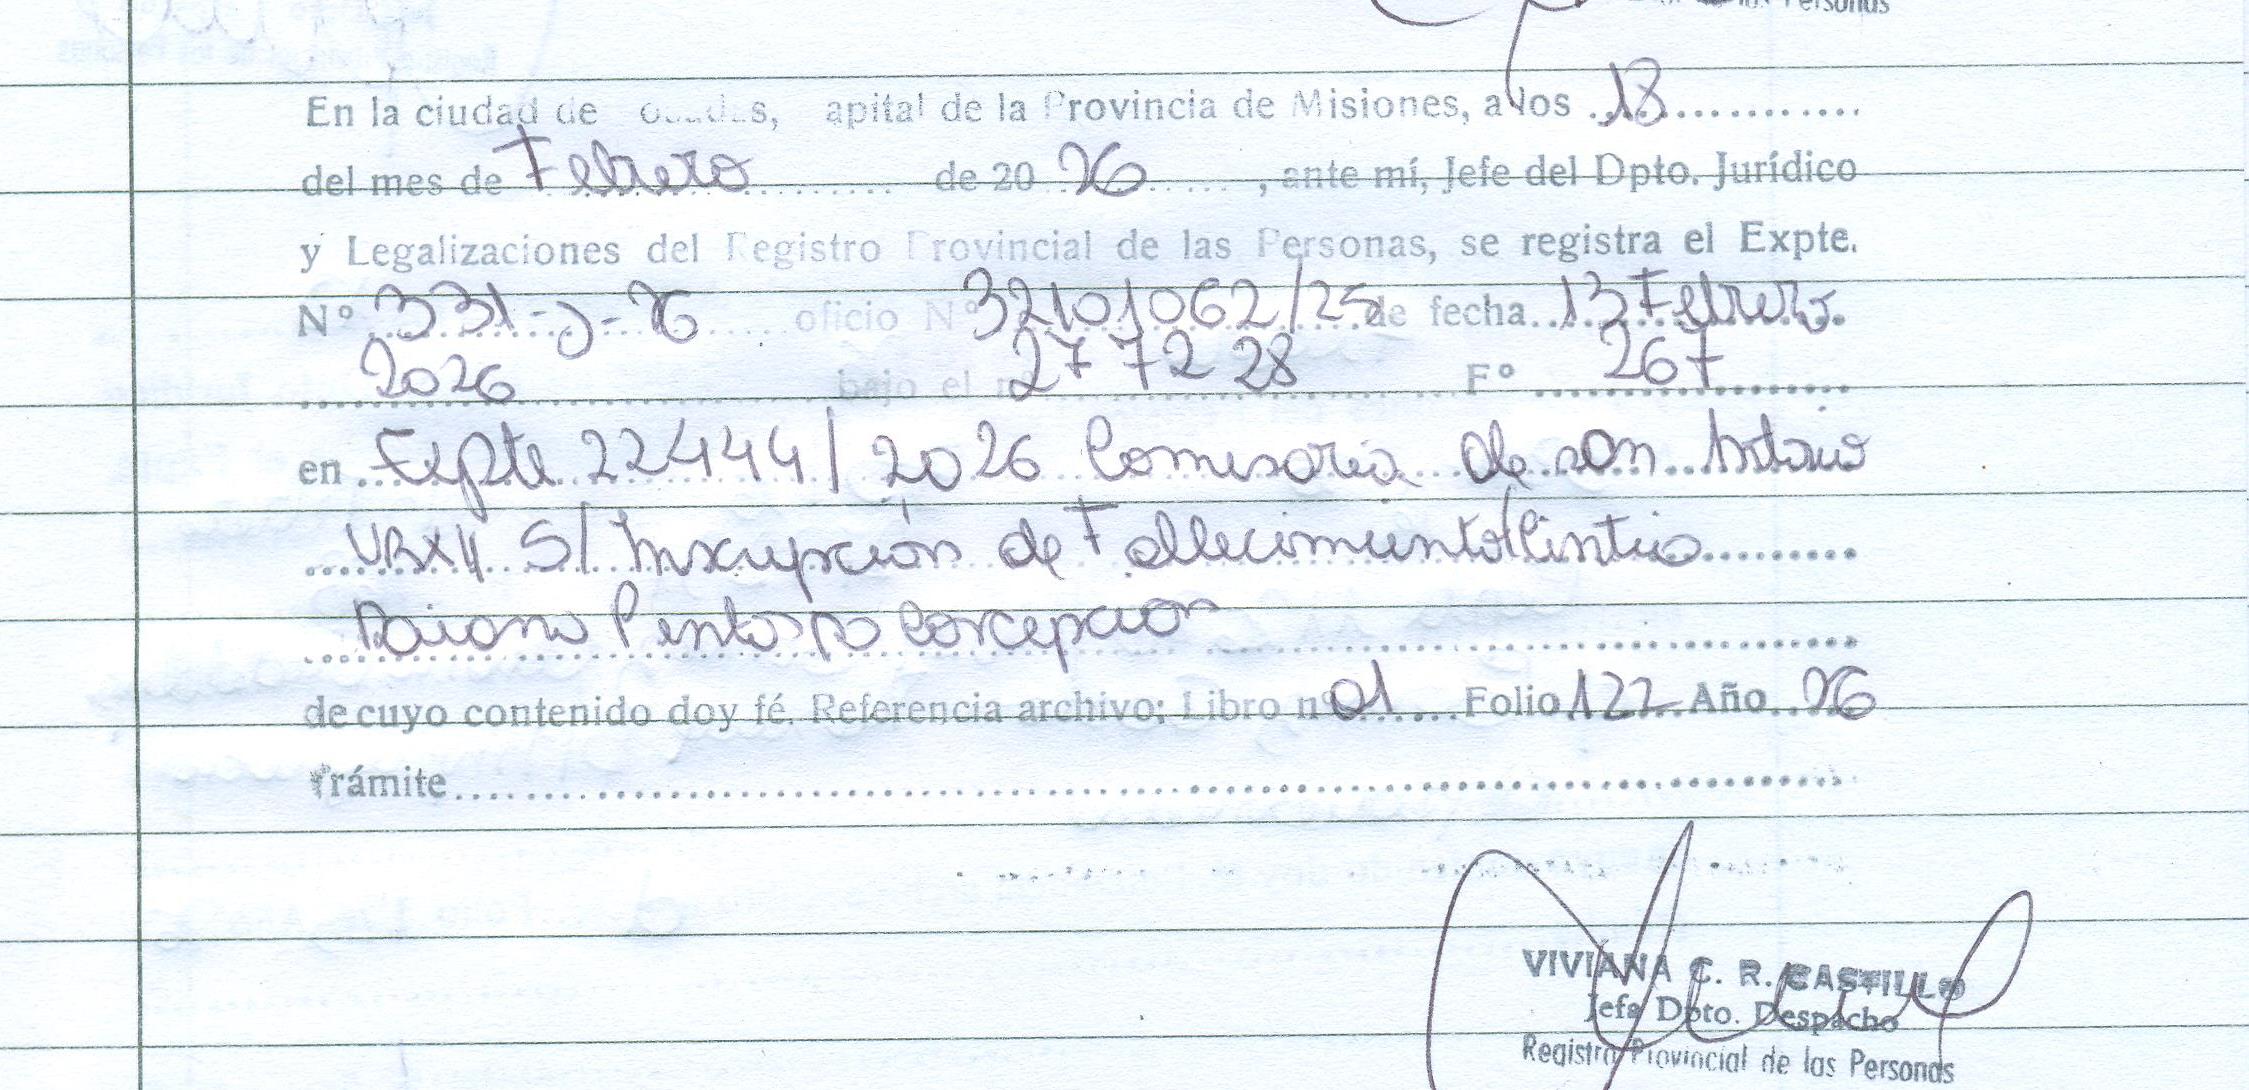 las Personas
En la ciudad de osadas, apital de la Provincia de Misiones, a los 18
del mes de Febrero de 20 26, ante mí, Jefe del Dpto. Jurídico
y Legalizaciones del Registro Provincial de las Personas, se registra el Expte.
Nº 331-J-26 oficio Nº 32101062/25 de fecha 13 Febrero
2026 bajo el nº 277228 Fº 267
en Expte 22444/2026 Comisaria de san Antonio
URXII S/ Inscripción de Fallecimiento Cintia
Daiana
de cuyo contenido doy fé. Referencia archivo; Libro nº 01 Folio 122 Año 26
Trámite
VIVIANA C. R. CASTILLO
Jefa Dpto. Despacho
Registro Provincial de las Personas